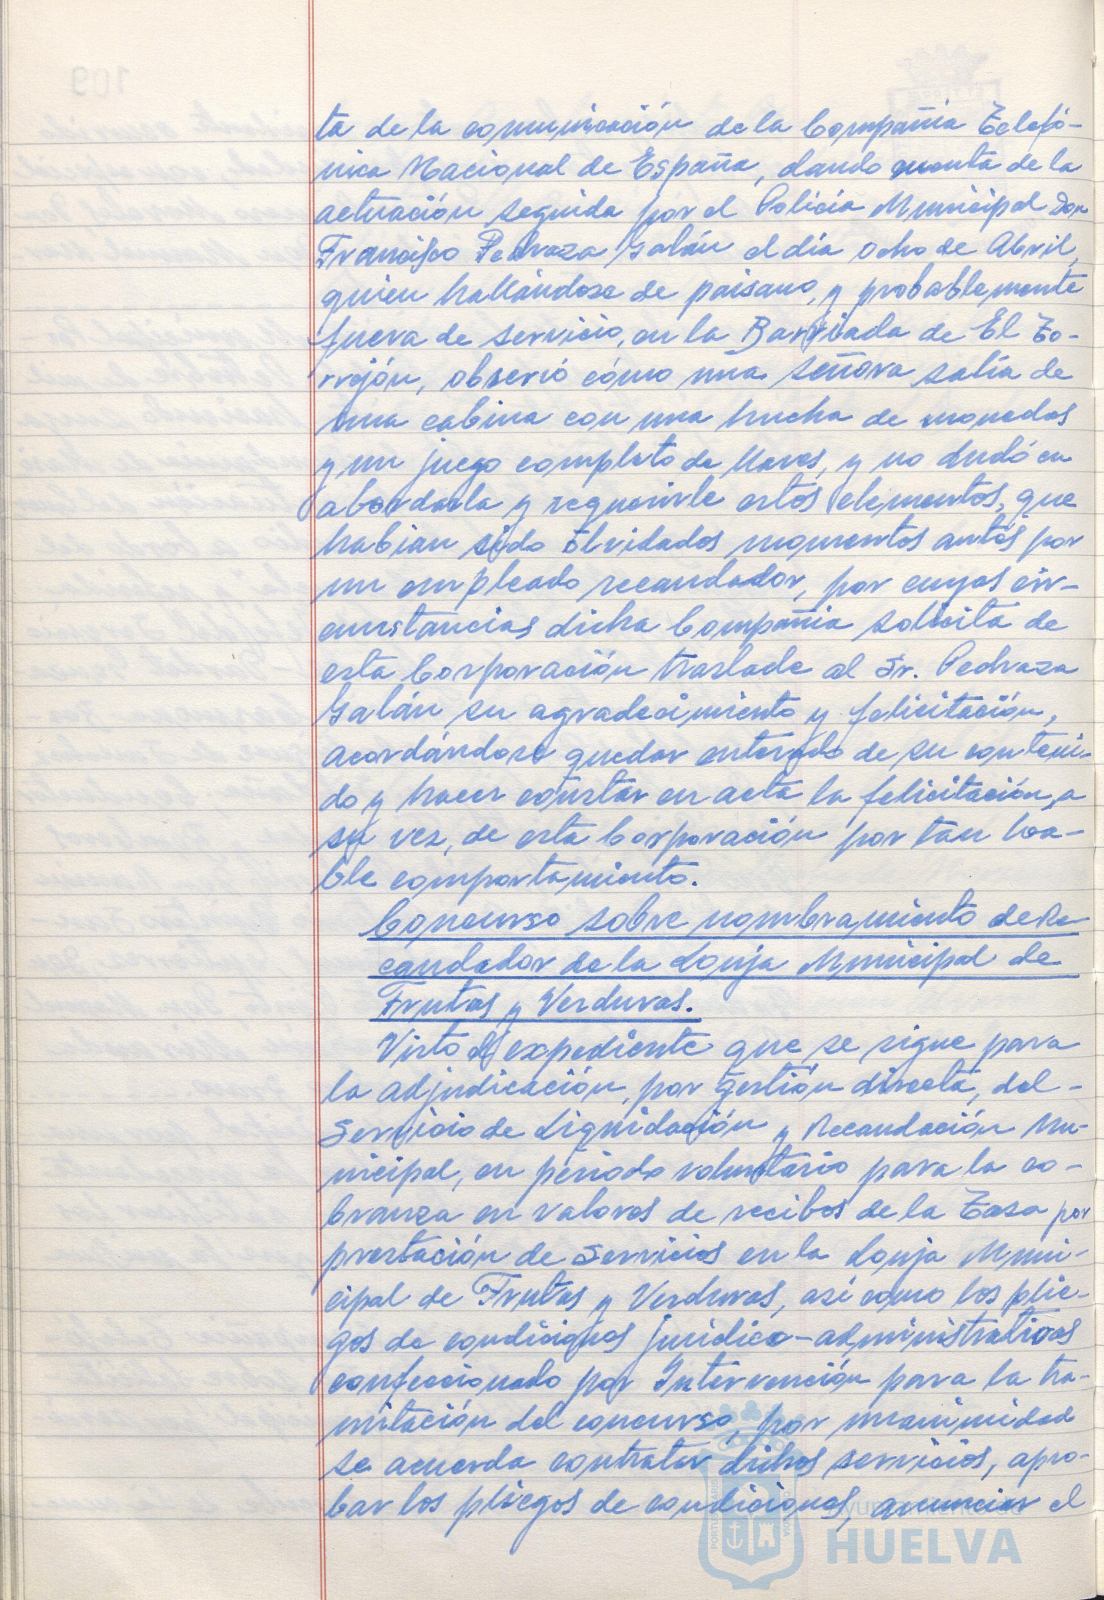 ta de la comunicación de la Compañía Telefó-
nica Nacional de España, dando cuenta de la
actuación seguida por el Policía Municipal Don
Francisco Pedraza Galán el día ocho de Abril,
quien hallándose de paisano, y probablemente
fuera de servicio, en la Barriada de El To-
rrejón, observó cómo una señora salía de
una cabina con una hucha de monedas
y un juego completo de llaves, y no dudó en
abordarla y requerirle estos elementos, que
habían sido olvidados momentos antes por
un empleado recaudador, por cuyas cir-
cunstancias dicha Compañía solicita de
esta Corporación traslade al Sr. Pedraza
Galán su agradecimiento y felicitación,
acordándose quedar enterado de su conteni-
do y hacer constar en acta la felicitación, a
su vez, de esta Corporación por tan loa-
ble comportamiento.
Concurso sobre nombramiento de Re
caudador de la Lonja Municipal de
Frutas y Verduras.
Visto el expediente que se sigue para
la adjudicación, por gestión directa, del -
Servicio de Liquidación y Recaudación Mu-
nicipal, en período voluntario para la co-
branza en valores de recibos de la Tasa por
prestación de Servicios en la Lonja Muni-
cipal de Frutas y Verduras, así como los plie-
gos de condiciones jurídico-administrativas
confeccionado por Intervención para la tra-
mitación del concurso, por unanimidad
se acuerda contratar dichos servicios, apro-
bar los pliegos de condiciones, anunciar el
Ayuntamiento de
HUELVA